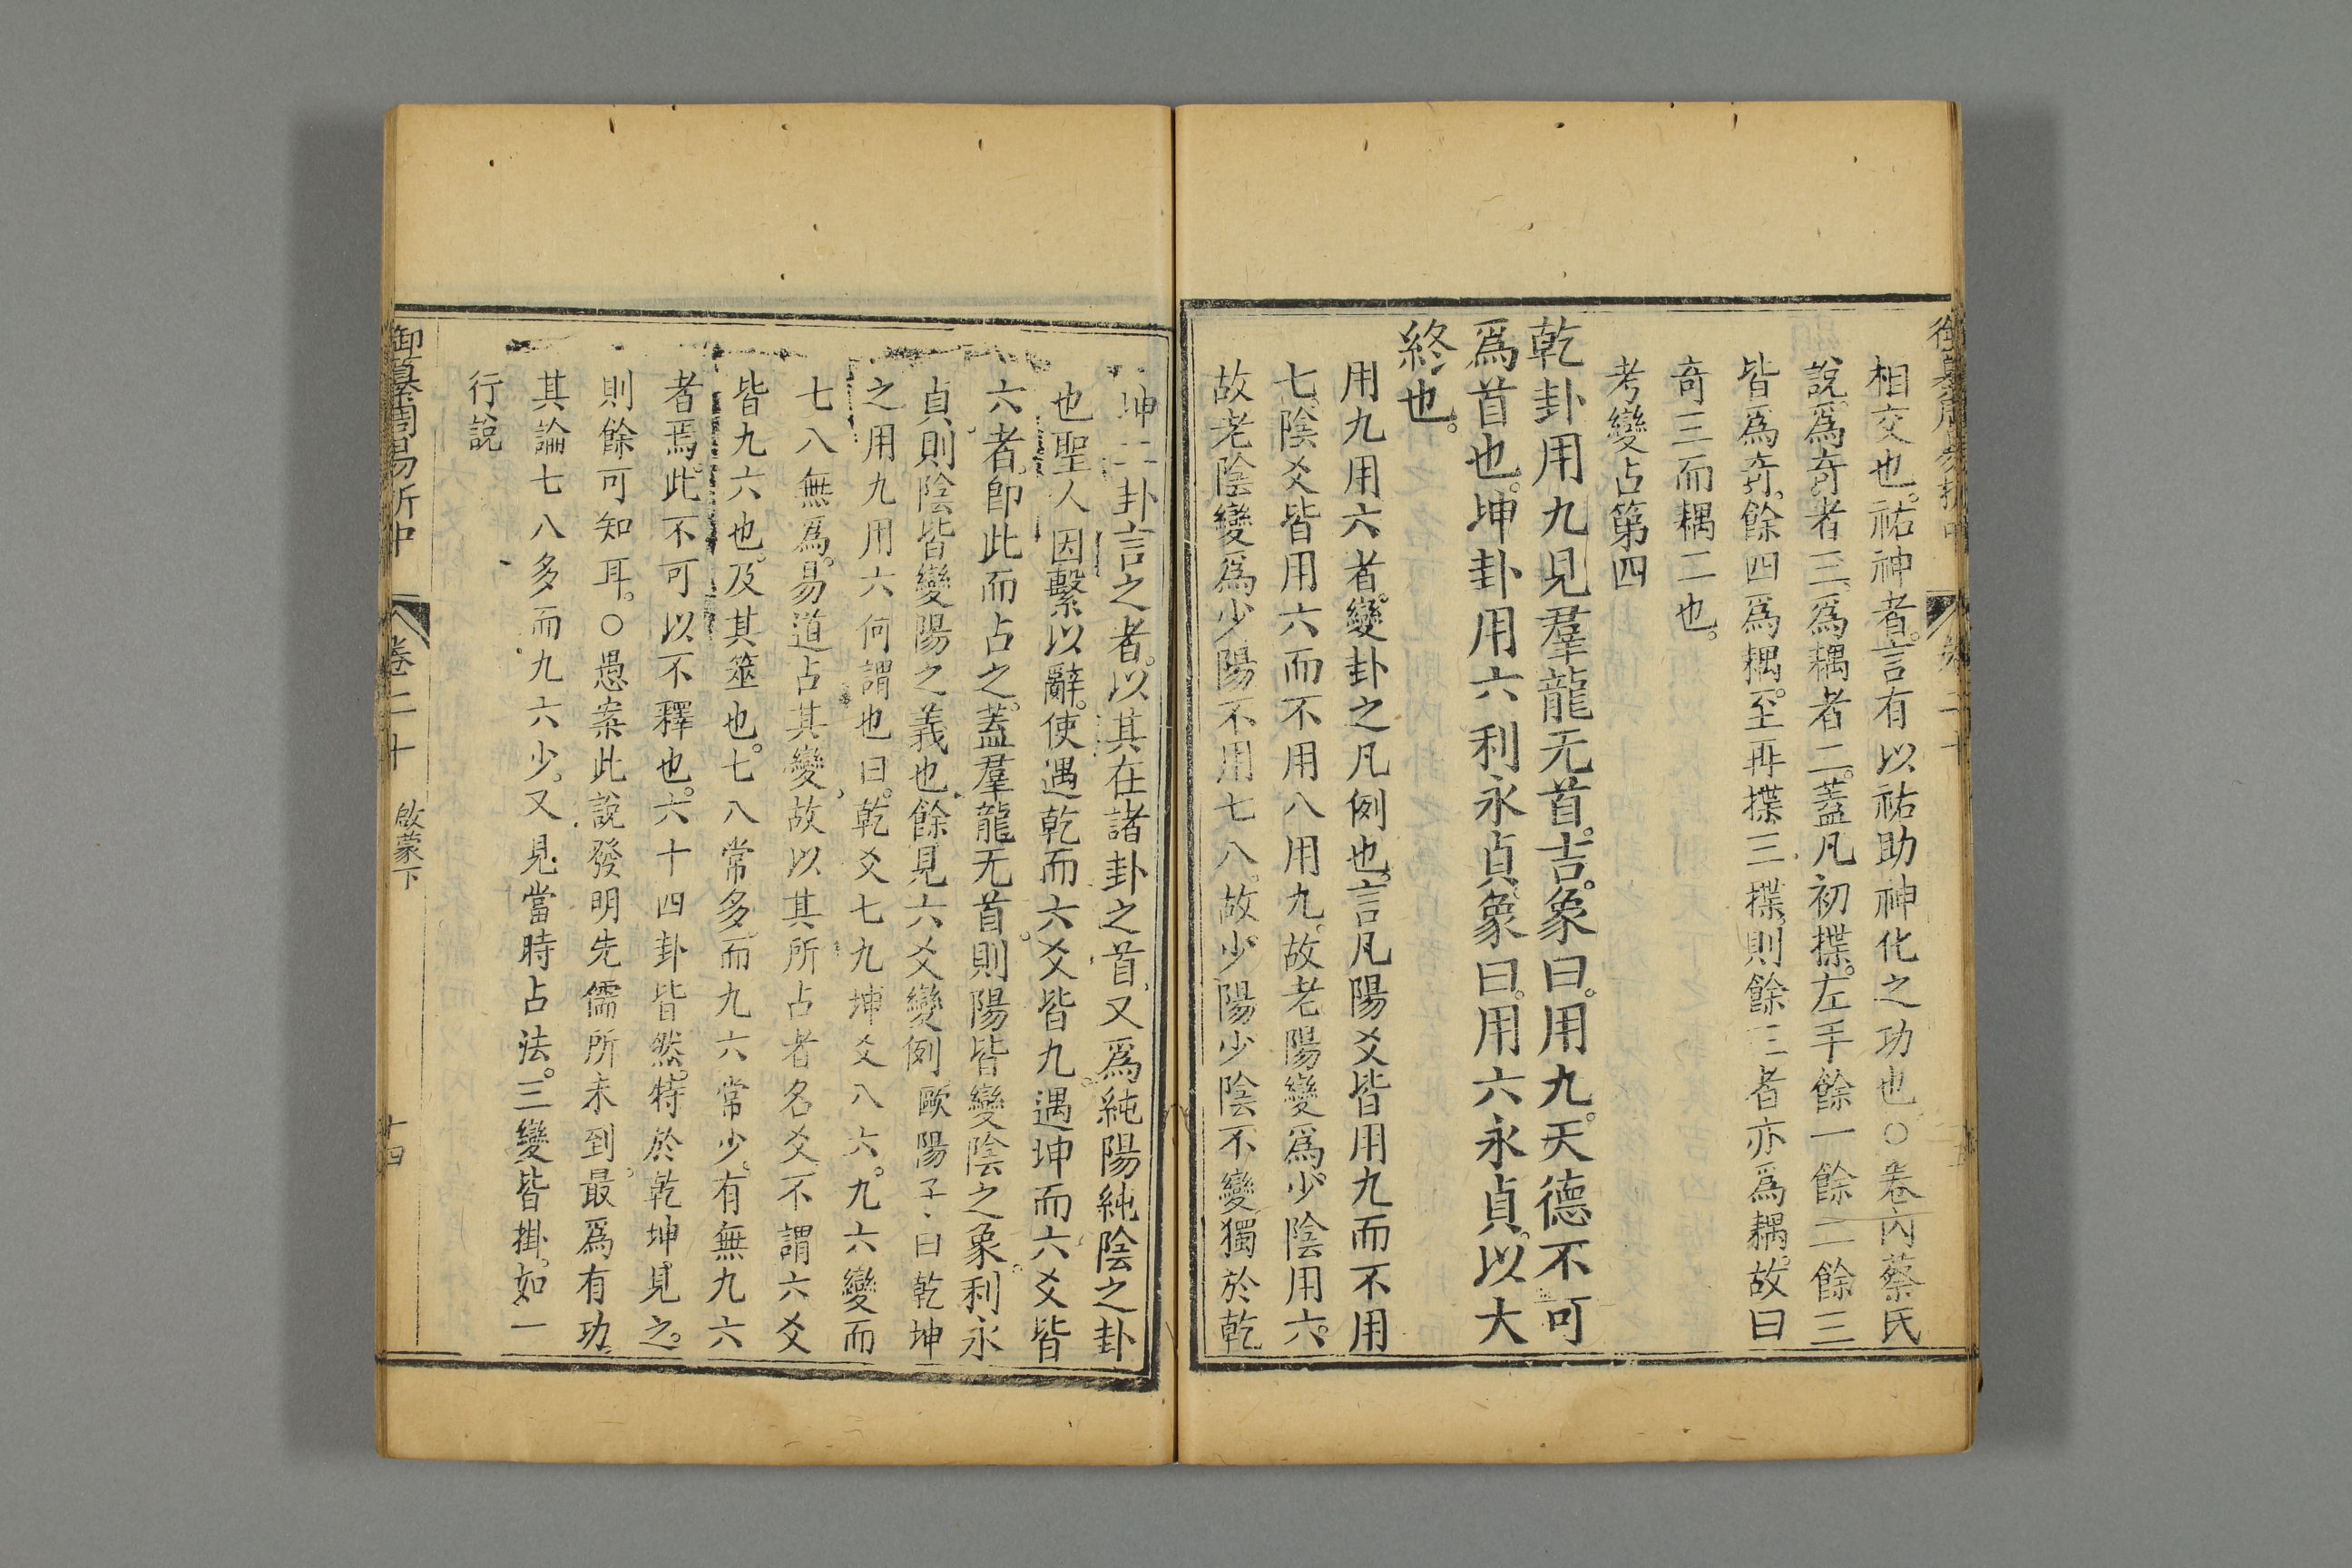 相交也。祐神者。言有以祐助神化之功也。○卷內蔡氏
說。爲奇者三。爲耦者二。蓋凡初揲。左手餘一餘二餘三
皆爲奇。餘四爲耦。至再揲三揲。則餘三者亦爲耦。故曰
奇三而耦二也。
考變占第四
乾卦用九見羣龍无首。吉。象曰。用九。天德不可
爲首也。坤卦用六利永貞。象曰。用六永貞。以大
終也。
用九用六者。變卦之凡例也。言凡陽爻皆用九而不用
七。陰爻皆用六而不用八。用九。故老陽變爲少陰。用六。
故老陰變爲少陽。不用七八。故少陽少陰不變。獨於乾
坤二卦言之者。以其在諸卦之首。又爲純陽純陰之卦
也。聖人因繫以辭。使遇乾而六爻皆九。遇坤而六爻皆
六者。卽此而占之。蓋羣龍无首。則陽皆變陰之象。利永
貞。則陰皆變陽之義也。餘見六爻變例 歐陽子曰。乾坤
之用九用六何謂也。曰。乾爻七九坤爻八六。九六變而
七八無爲。易道占其變。故以其所占者名爻。不謂六爻
皆九六也。及其筮也。七八常多。而九六常少。有無九六
者焉。此不可以不釋也。六十四卦皆然。特於乾坤見之。
則餘可知耳。○愚案此說發明先儒所未到。最爲有功。
其論七八多而九六少。又見當時占法。三變皆掛。如一
行說
御纂周易折中
卷二十
啟蒙下
十四